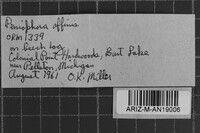 Peniophora affinis
OKM 1339
on beech log
Colonial Point Hardwoods, Burt Lake
near Pellston, Michigan
August 1961 O.K. Miller
ARIZ-M-AN19006